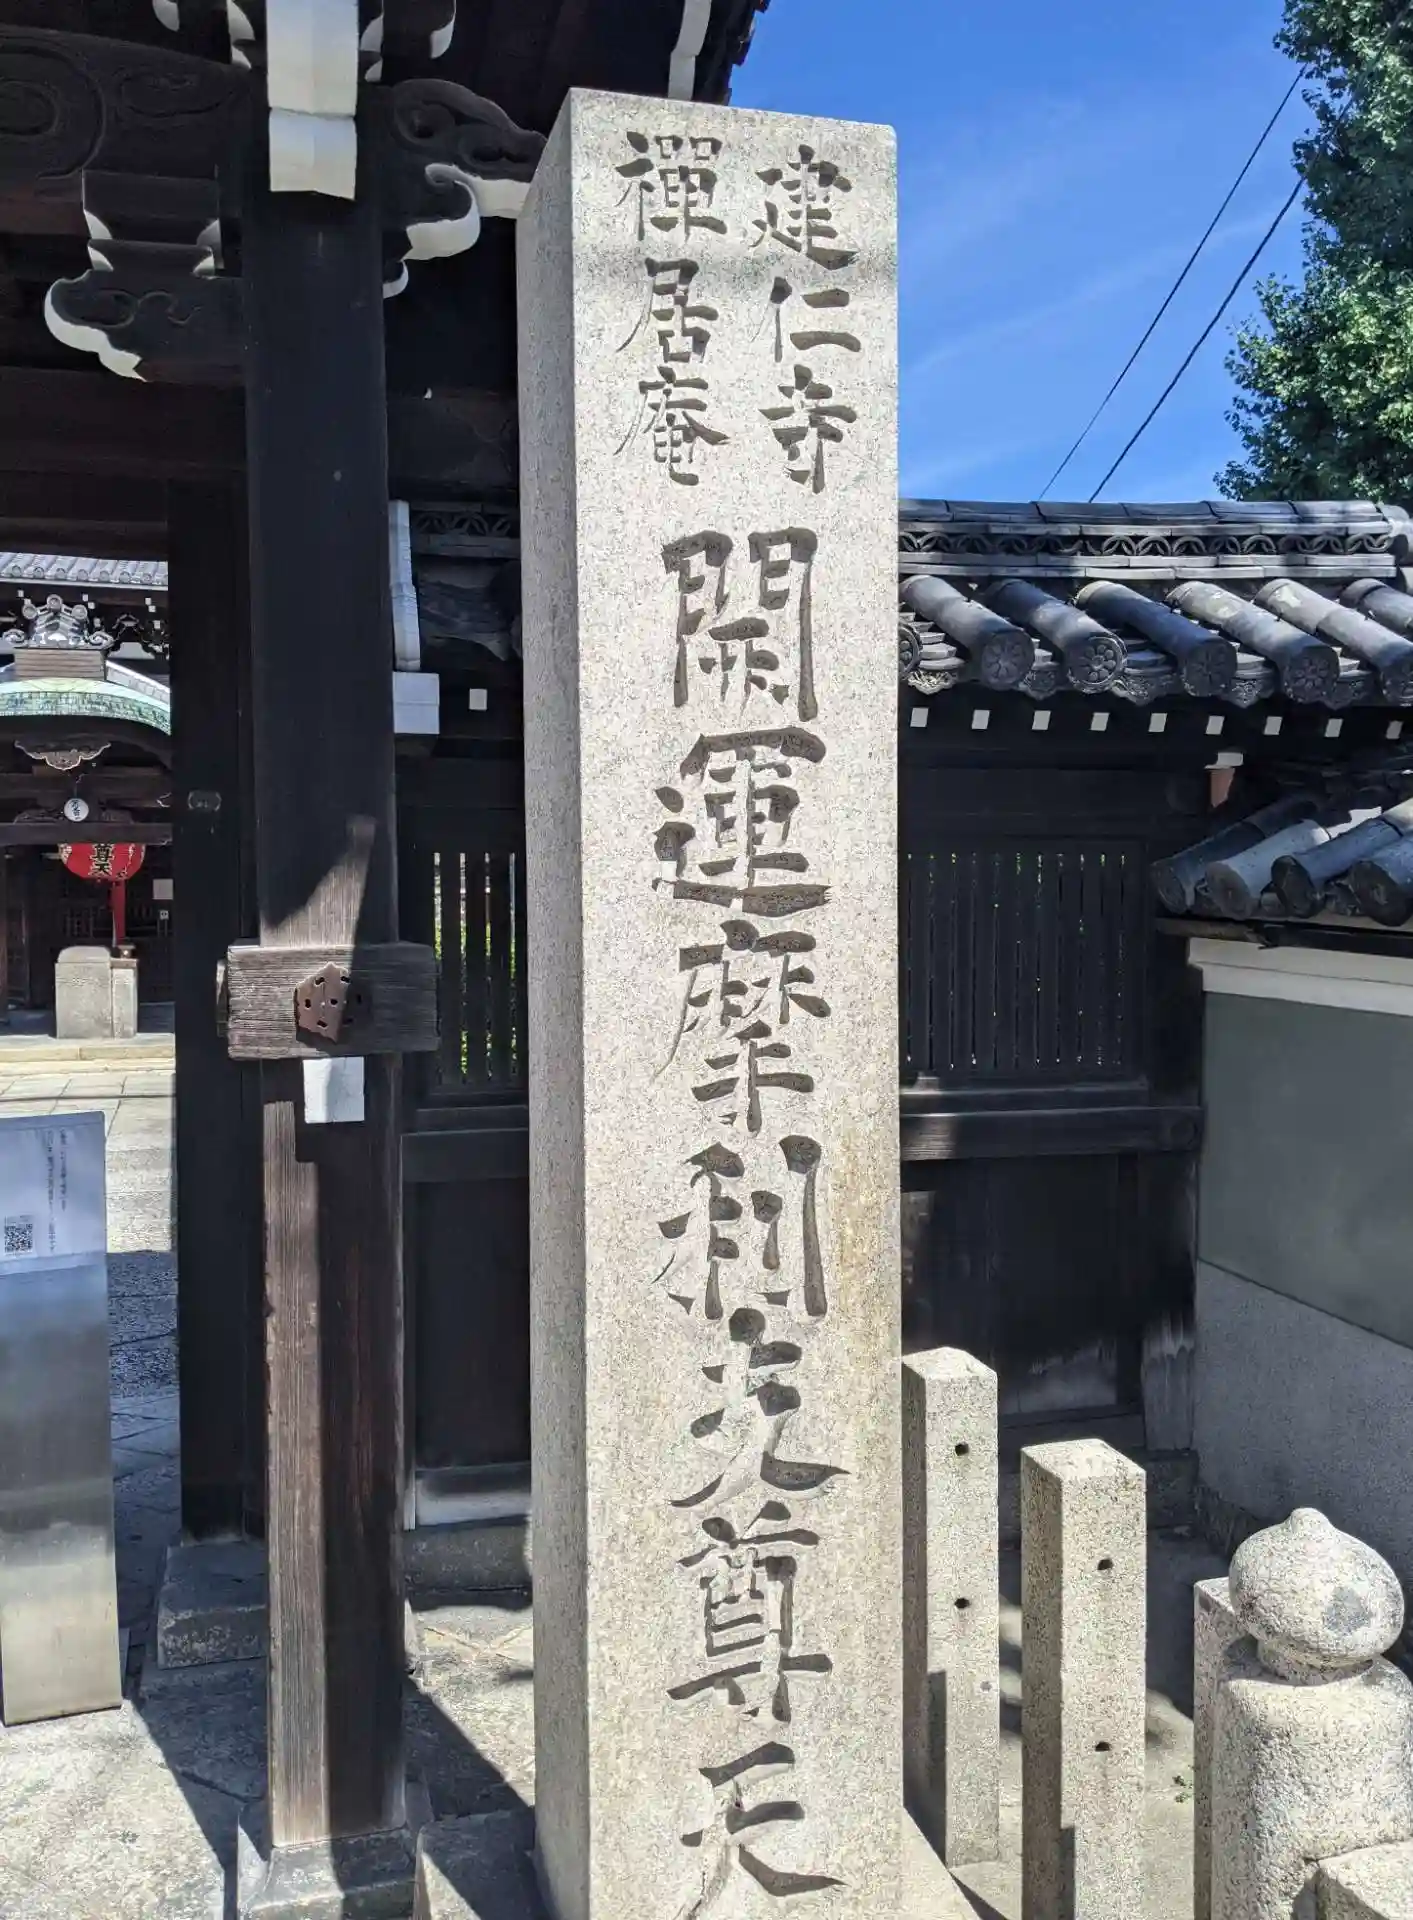 建仁寺
禪居庵
開運摩利支尊天
尊天